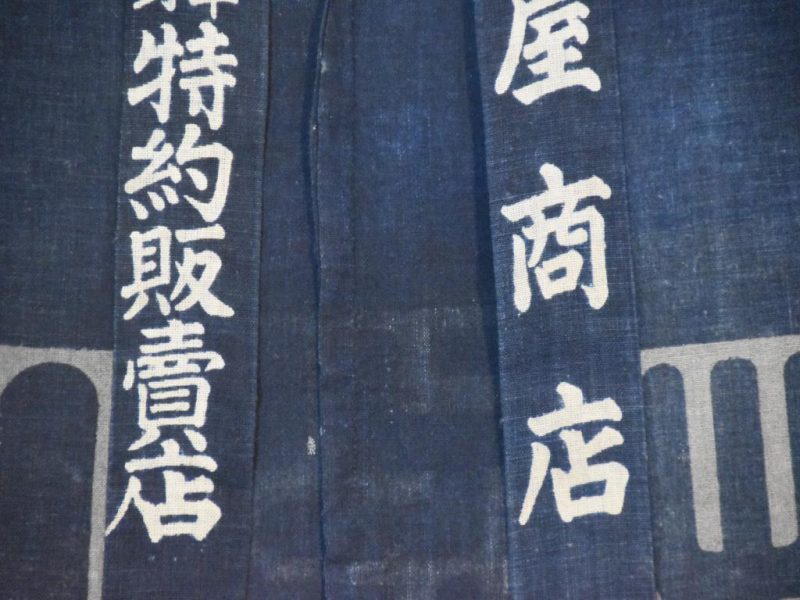 屋商店
特約販賣店